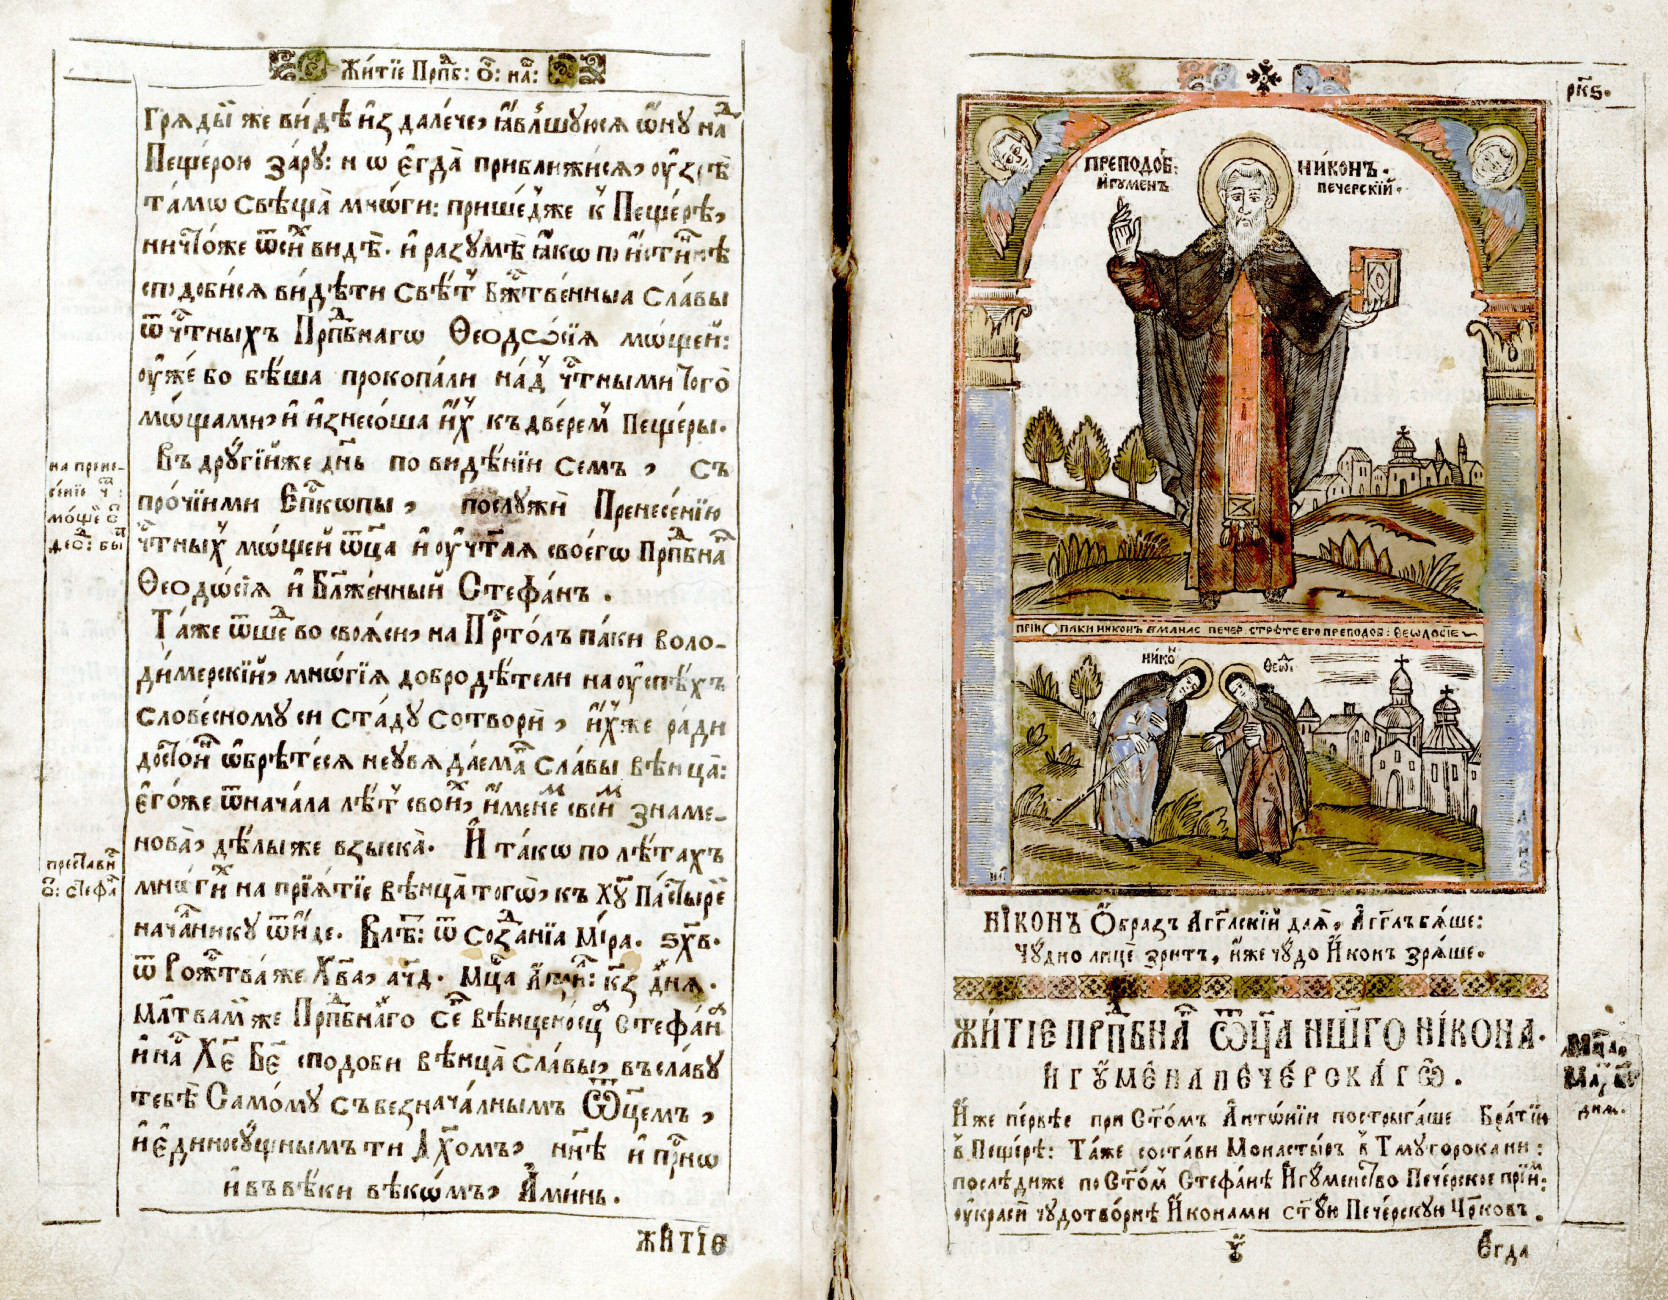 Жи́тїе Прпⷣб: Ѻ҃: на́ш:
Гряды́й же ви́дѣ и҆з̾ дале́че, ꙗ҆́вльшуюся ѻ҆́ну наⷣ
Пеще́рою зарꙋ̀: и ѡ҆ є҆гда̀ прибли́жися, ᲂу҆зрѣ̀
та́мѡ свѣща̀ мнѡ́ги: прише́дже к̾ Пеще́рѣ,
ничто́же ѿ си́хъ ви́дѣ. и҆ разꙋмѣ̀ ꙗ҆́кѡ по и҆́стиннѣ
сподо́бися ви́дѣти свѣ́тъ Бж҃твенныѧ сла́вы
ѿ чⷭтныхъ Прпⷣбнагѡ Ѳеодо́сїѧ мѡ́щей:
ᲂу҆же́ бо бѣ́ша прокопа́ли на́дъ чⷭтными єгѡ̀
мѡ́щами, и҆ и҆знесо́ша и҆́хъ къ две́ремъ Пеще́ры.
Въ дрꙋгі́йже дн҃ь по ви́дѣнїи семъ, съ
про́чїими Епⷭкѡпы, послꙋжѝ Пренесе́нїю
чⷭтны́хъ мѡ́щей ѻ҆тц҃а и҆ ᲂу҆чт҃лѧ своегѡ̀ Прпⷣбнаⷢ
Ѳеодѡ́сїѧ и҆ Блж҃е́нный Стефа́нъ.
на прене-
се́нїе чⷭ:
мо́щей с҃:
Ѳеѡⷣ: бы
Та́же ѿше́дъ во своѧ́си, на Прⷭто́лъ па́ки воло-
ди́мерскїй, мнѡ́гїѧ добродѣ́тели на ᲂу҆спѣ́хъ
слове́сномꙋ си ста́дꙋ сотворѝ, и҆́хже ра́ди
досто́йнѡ ѡ҆брѣ́теся неꙋвяда́емаⷢ сла́вы вѣнца̀:
є҆го́же ѿ нача́ла лѣ́тъ свои́хъ, и҆́менемъ свои́мъ знаме-
нова̀, дѣ́лы же взыска̀. И҆ та́кѡ по лѣ́тахъ
мно́гихъ на прїѧ́тїе вѣнца̀ тогѡ̀, къ Хрⷭтꙋ̀ Па́стырє
нача́лникꙋ ѿи́де. В лѣ́т: ѿ созда́нїѧ Мі́ра. ҂ѕх҃в.
преставле́н
ѻ҃: Стефа́н
ѿ Рож҃тва́ же Хв҃а, ҂ац҃д. Мц҃а А҆прі́л: к҃з дн҃ѧ.
Мл҃твами же Прпⷣбнаго Сегѡ̀ вѣнцено́сца Стефа́на
и҆ на́съ Хе҃ Бж҃е сподо́би вѣнца̀ сла́вы, въ сла́вꙋ
тебѣ̀ Само́мꙋ съ безнача́лнымъ Ѻ҆тц҃емъ,
и҆ є҆диносꙋ́щнымъ ти Дх҃омъ, нн҃ѣ и҆ при́снѡ
и҆ въ вѣ́ки вѣкѡ́мъ, А҆ми́нь.
ЖИТЇЕ
рк҃ѕ.
ПРЕПОДОБ: НИ́КОНЪ.
И́ГУМЕНЪ ПЕЧЕРСКЇЙ.
ПАКИ НИКОНЪ В МАНАС ПЕЧЕР СТРѢТЕ ЕГО ПРЕПОДОБ: ѲЕѠДОСІЕ
НИКОⷩ ѲЕѠⷣ:
НІ́КОНЪ Ѻ҆́браз Агг҃лскїй даѧ̀, А҆гг҃лъ бѧ́ше:
Чꙋ́дно лицѐ зритъ, и҆́же чꙋ́до И҆́кон зрѧ́ше.
ЖИТІЕ ПРПⷣБНАⷢ Ѻ҆ТЦ҃А НШ҃ГО НІ́КОНА.
И҆ГУ́МЕНА ПЕЧЕ́РСКАГѠ.
Мц҃а
Ма́р
дня.
И҆́же пе́рвѣе при Ст҃о́мъ А҆нтѡ́нїи постриза́ше Бра́тїю
в̾ Пеще́рѣ: Та́же соста́ви Монасты́рь в̾ Тмꙋторокани:
послѣ́диже по Ст҃о́мъ Стефа́нѣ И҆гꙋ́менство Пече́рское прїи́м:
ᲂу҆красѝ чꙋдотво́рнѣ И҆́конами ст҃ꙋ́ю Пече́рскꙋю Цр҃ковь.
Є҆гда